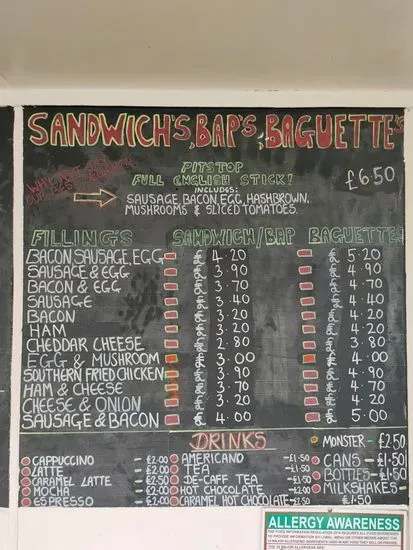 SANDWICH'S, BAP'S, BAGUETTE'S
PITSTOP
FULL ENGLISH STICK!
INCLUDES:
SAUSAGE, BACON, EGG, HASHBROWN,
MUSHROOMS & SLICED TOMATOES.
£6.50
FILLING'S SANDWICH/BAP BAGUETTES
BACON SAUSAGE, EGG £ 4.20 £ 5.20
SAUSAGE & EGG £ 3.90 £ 4.90
BACON & EGG £ 3.70 £ 4.70
SAUSAGE £ 3.40 £ 4.40
BACON £ 3.20 £ 4.20
HAM £ 3.20 £ 4.20
CHEDDAR CHEESE £ 2.80 £ 3.80
EGG & MUSHROOM £ 3.00 £ 4.00
SOUTHERN FRIED CHICKEN £ 3.90 £ 4.90
HAM & CHEESE £ 3.70 £ 4.70
CHEESE & ONION £ 3.20 £ 4.20
SAUSAGE & BACON £ 4.00 £ 5.00
DRINKS
CAPPUCCINO £2.00
LATTE £2.00
CARAMEL LATTE £2.50
MOCHA £2.00
ESPRESSO £2.00
AMERICANO £1.50
TEA £1.50
DE-CAFF TEA £1.50
HOT CHOCOLATE £2.00
CARAMEL HOT CHOCOLATE £2.50
MONSTER £2.50
CANS £1.50
BOTTLES £1.50
MILKSHAKES
£1.50
ALLERGY AWARENESS